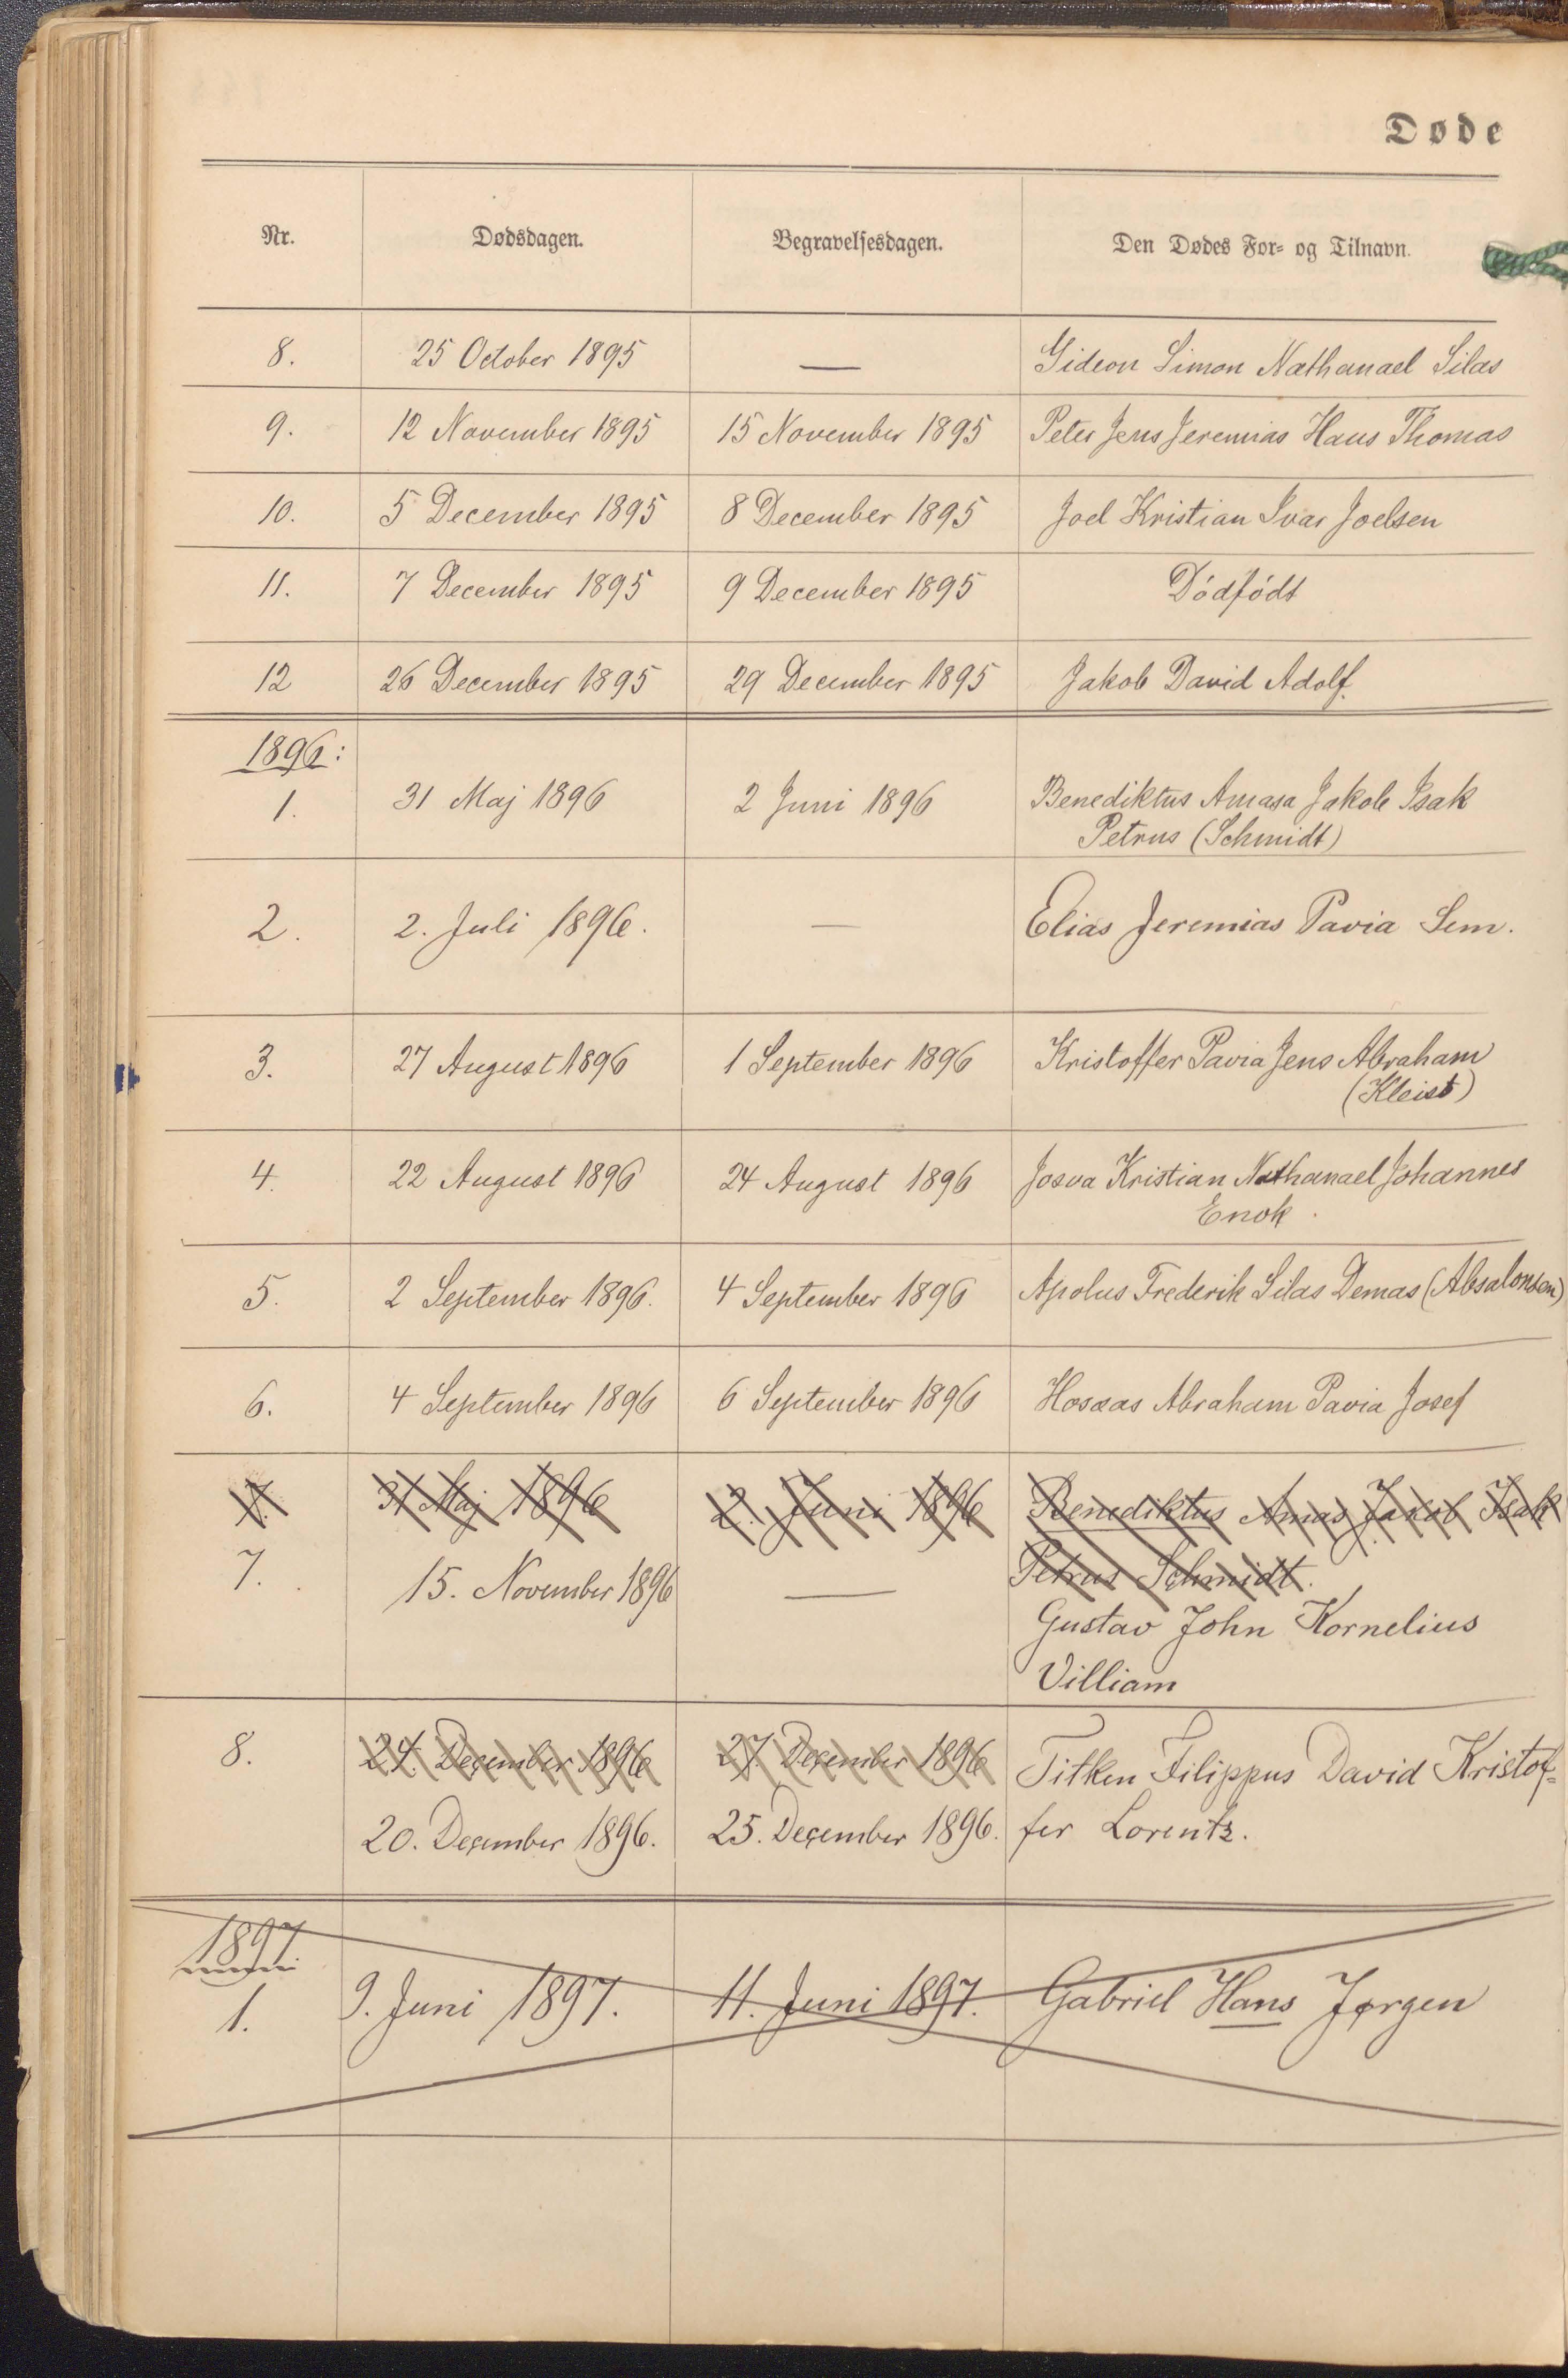 Døde
Nr. Dødsdagen. Begravelsesdagen. Den Dødes For= og Tilnavn.
8. 25 October 1895 — Gideon Simon Nathanael Silas
9. 12 November 1895 15 November 1895 Peter Jens Jeremias Hans Thomas
10. 5 December 1895 8 December 1895 Joel Kristian Ivar Joelsen
11. 7 December 1895 9 December 1895 Dódfódt
12 26 December 1895 29 December 1895 Jakob David Adolf.
1896:
1. 31 Maj 1896 2 Juni 1896 Benediktus Amasa Jakob Isak
Petrus (Schmidt)
2. 2. Juli 1896. — Elias Jeremias Pavia Sem.
3. 27 August 1896 1 September 1896 Kristoffer Pavia Jens Abraham
(Kleist)
4. 22 August 1896 24 August 1896 Josva Kristian Nathanael Johannes
Enok.
5. 2 September 1896. 4 September 1896 Apolus Frederik Silas Demas (Absalonsen)
6. 4 September 1896 6 September 1896 Hosæas Abraham Pavia Josef
7. 31 Maj 1896 2. Juni 1896 Benediktus Amas. Jakob Isak
Petrus Schmidt.
7. 15. November 1896 —
Gustav John Kornelius
Villiam
8. 24. December 1896 27. December 1896 Titken Filippus David Kristof=
20. December 1896. 25. December 1896. fer Lorentz.
1897.
1. 9. Juni 1897. 11. Juni 1897. Gabriel Hans Jørgen